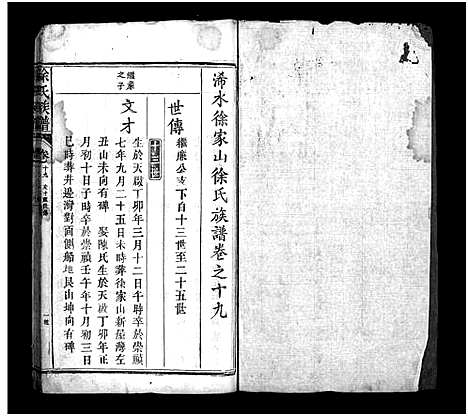 浠水徐家山徐氏族譜卷之十九
世傳
繼廉公支下自十三世至二十五世
繼廉之子
文才
生於天啟丁卯年三月十二日午時卒於崇禎
七年九月二十五日未時葬徐家山新屋灣左
丑山未向有碑　娶陳氏生於天啟丁卯年正
月初十日子時卒於崇禎壬午年十月初三日
巳時葬井邊灣對面側船地艮山坤向有碑
徐氏族譜
卷十九